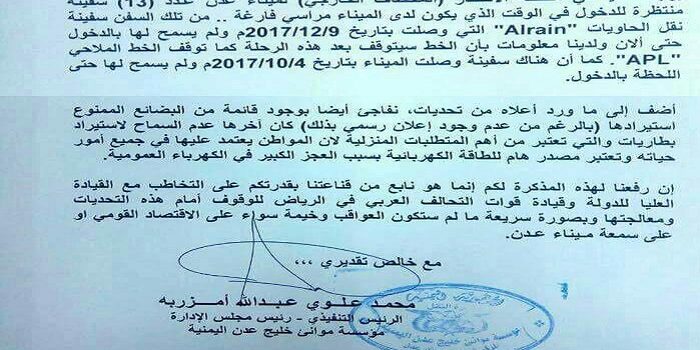 منتظرة للدخول في الوقت الذي يكون لدى الميناء مراسي فارغة .. من تلك السفن سفينة
نقل الحاويات "Alrain" التي وصلت بتاريخ 2017/12/9م ولم يسمح لها بالدخول
حتى ألان ولدينا معلومات بأن الخط سيتوقف بعد هذه الرحلة كما توقف الخط الملاحي
"APL". كما أن هناك سفينة وصلت الميناء بتاريخ 2017/10/4م ولم يسمح لها حتى
اللحظة بالدخول.
أضف إلى ما ورد أعلاه من تحديات، نفاجئ أيضا بوجود قائمة من البضائع الممنوع
استيرادها (بالرغم من عدم وجود إعلان رسمي بذلك) كان أخرها عدم السماح لاستيراد
بطاريات والتي تعتبر من أهم المتطلبات المنزلية لان المواطن يعتمد عليها في جميع أمور
حياته وتعتبر مصدر هام للطاقة الكهربائية بسبب العجز الكبير في الكهرباء العمومية.
إن رفعنا لهذه المذكرة لكم إنما هو نابع من قناعتنا بقدرتكم على التخاطب مع القيادة
العليا للدولة وقيادة قوات التحالف العربي في الرياض للوقوف أمام هذه التحديات
ومعالجتها وبصورة سريعة ما لم ستكون العواقب وخيمة سواء على الاقتصاد القومي او
على سمعة ميناء عدن.
مع خالص تقديري ،،،
محمد علوي عبدالله أمزربه
الرئيس التنفيذي - رئيس مجلس الإدارة
مؤسسة موانئ خليج عدن اليمنية
مؤسسة موانئ خليج عدن اليمنية